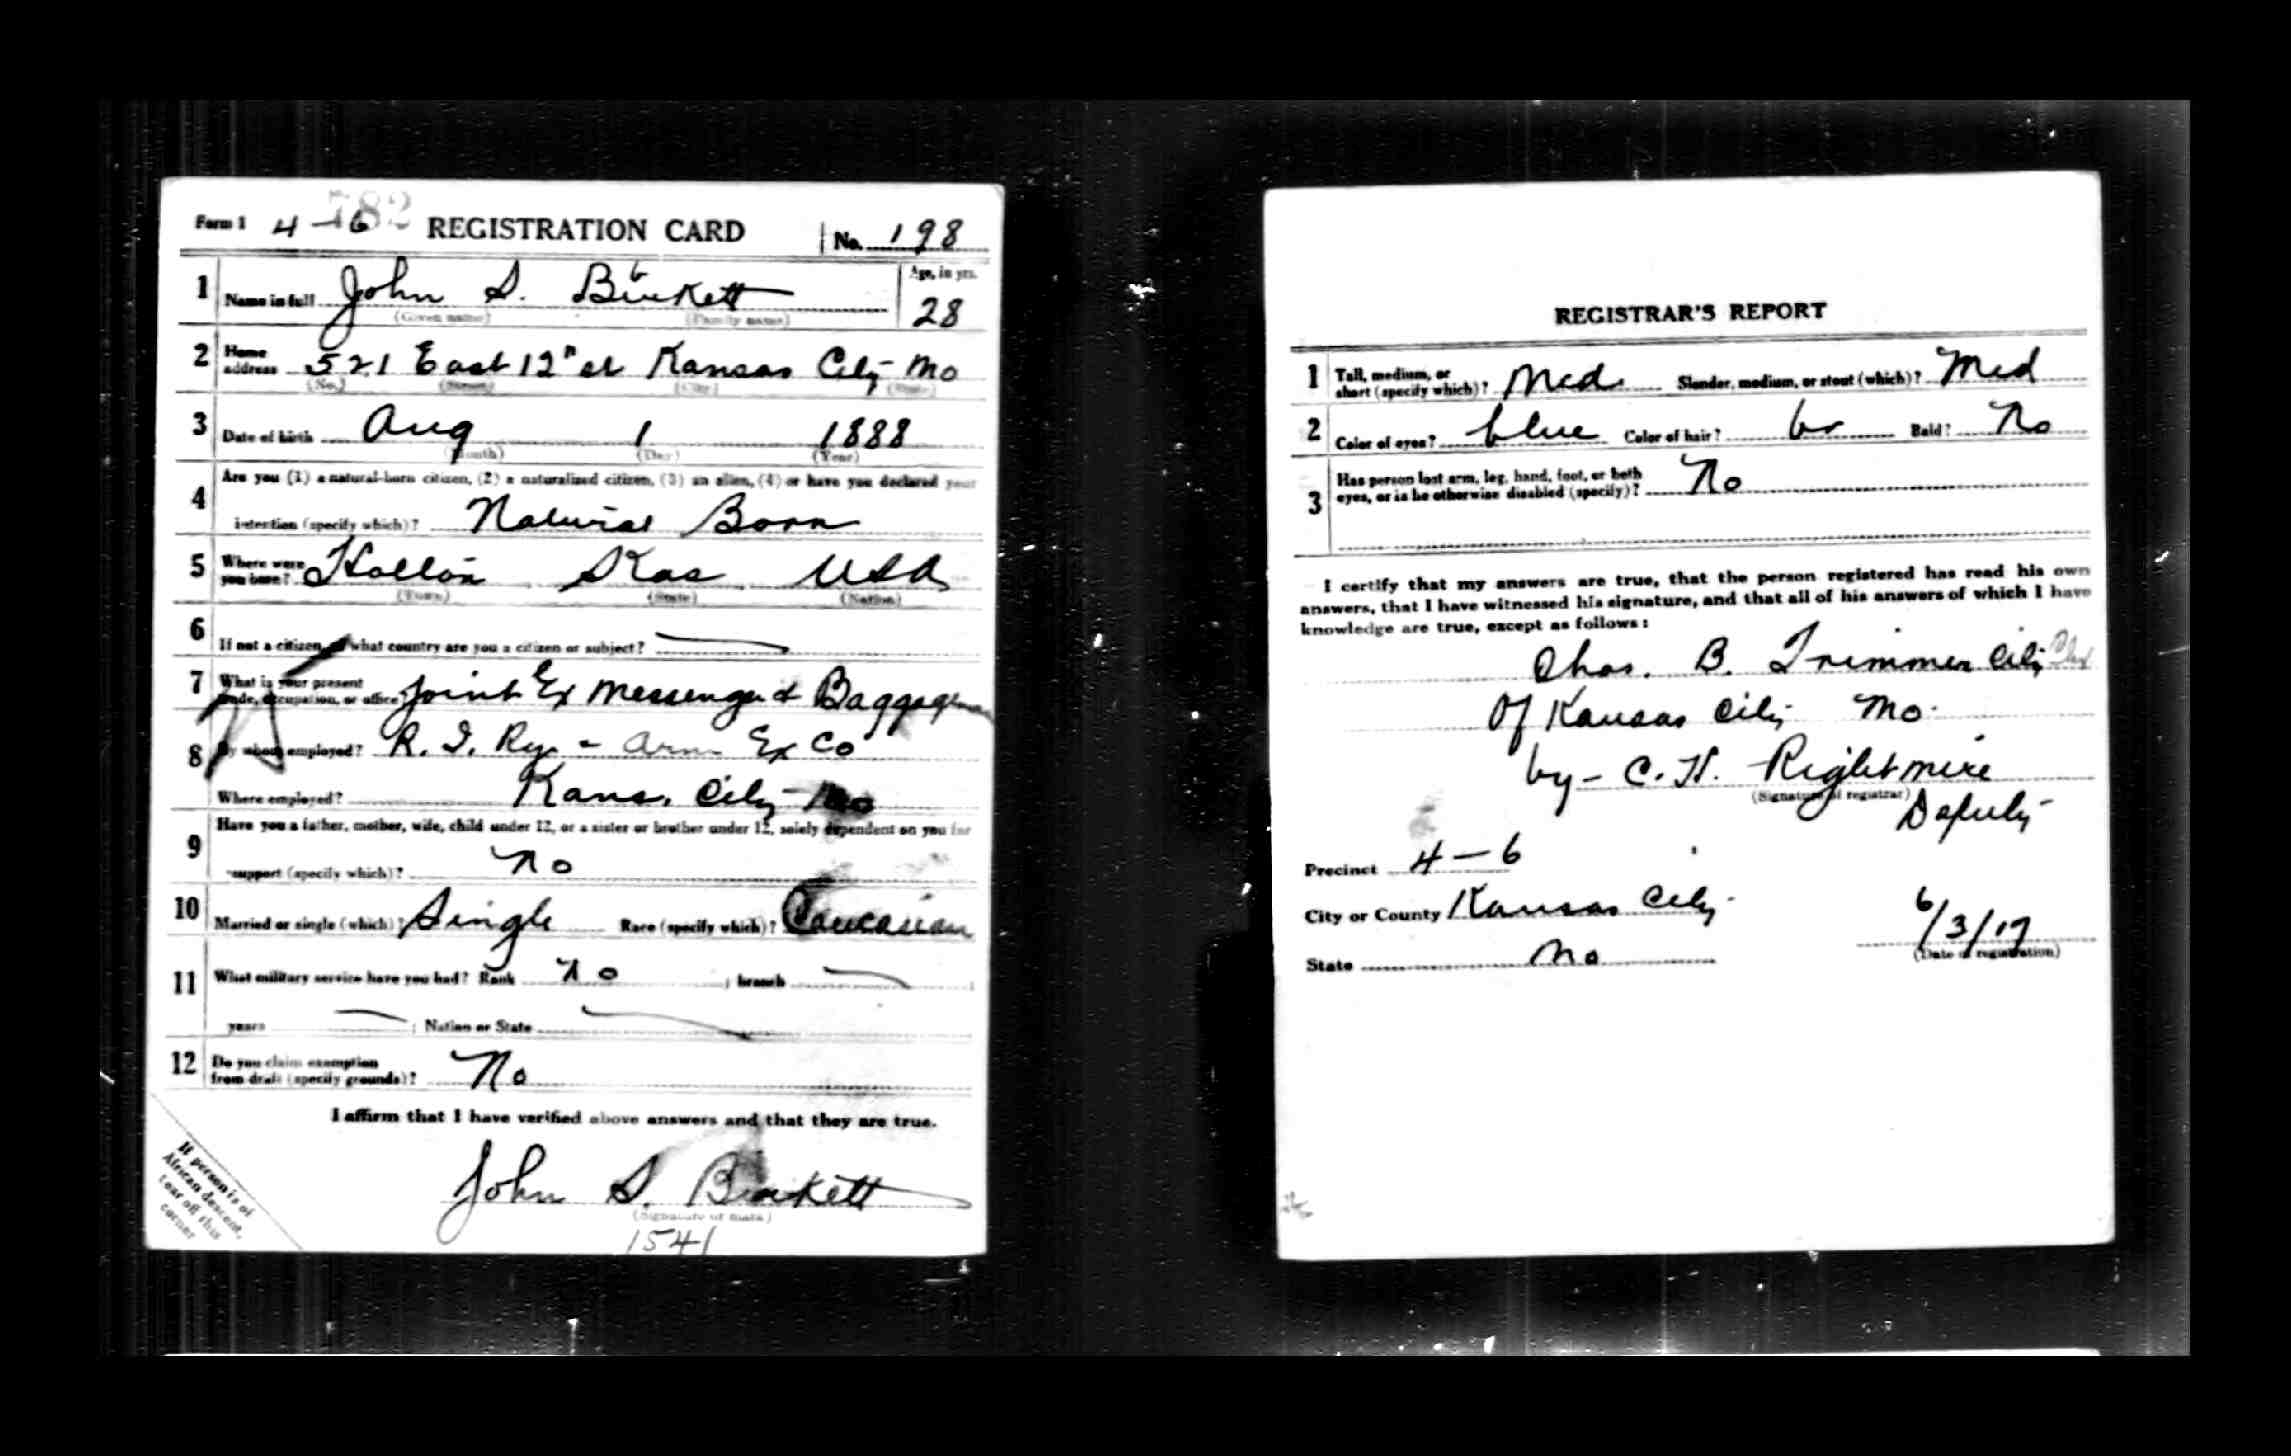 782
Form 1 4-6 REGISTRATION CARD No. 198
1 Name in full John S. Birkett Age, in yrs. 28
(Given name) (Family name)
2 Home address 521 East 12" st Kansas City Mo
(No.) (Street) (City) (State)
3 Date of birth Aug 1 1888
(Month) (Day) (Year)
4 Are you (1) a natural-born citizen, (2) a naturalized citizen, (3) an alien, (4) or have you declared your
intention (specify which)? Natural Born
5 Where were you born? Holton Kas USA
(Town) (State) (Nation)
6 If not a citizen, of what country are you a citizen or subject?
7 What is your present trade, occupation, or office? Joint Ex Messenger & Baggageman
8 By whom employed? R. I. Ry - Am Ex Co
Where employed? Kans. City Mo
9 Have you a father, mother, wife, child under 12, or a sister or brother under 12, solely dependent on you for
support (specify which)? No
10 Married or single (which)? Single Race (specify which)? Caucasian
11 What military service have you had? Rank No ; branch ;
years ; Nation or State
12 Do you claim exemption from draft (specify grounds)? No
I affirm that I have verified above answers and that they are true.
John S. Birkett
(Signature or mark)
1541
If person is of
African descent,
tear off this
corner
REGISTRAR'S REPORT
1 Tall, medium, or short (specify which)? Med Slender, medium, or stout (which)? Med
2 Color of eyes? blue Color of hair? br Bald? No
3 Has person lost arm, leg, hand, foot, or both
eyes, or is he otherwise disabled (specify)? No
I certify that my answers are true, that the person registered has read his own
answers, that I have witnessed his signature, and that all of his answers of which I have
knowledge are true, except as follows:
Chas. B. Trimmer City
Of Kansas City Mo.
by - C. H. Rightmire
(Signature of registrar)
Deputy
Precinct 4-6
City or County Kansas City
State Mo
6/3/17
(Date of registration)